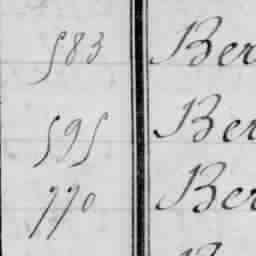 583 Ber
595 Ber
770 Ber